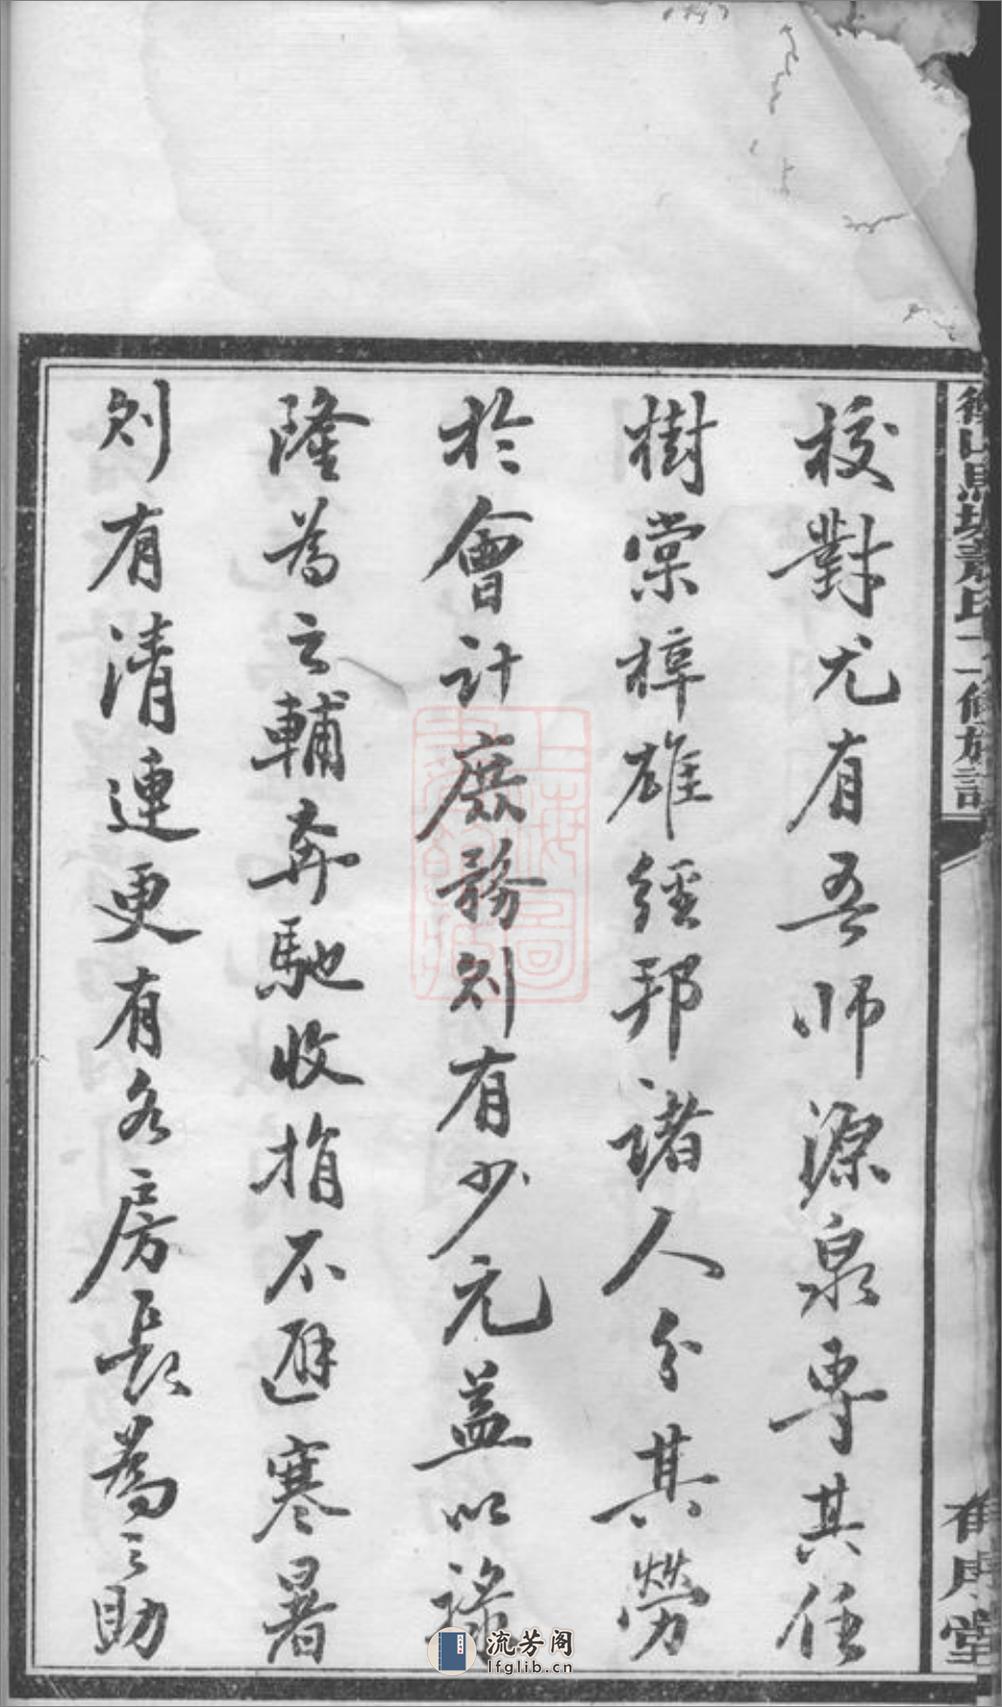 校對尤有吾師源泉専其任
樹棠梓雄經邦諸人分其勞
於會計庶務則有少元益以
隆為之輔奔馳收捐不避寒暑
則有清連更有各房長為之助
流芳阁
lfglib.cn